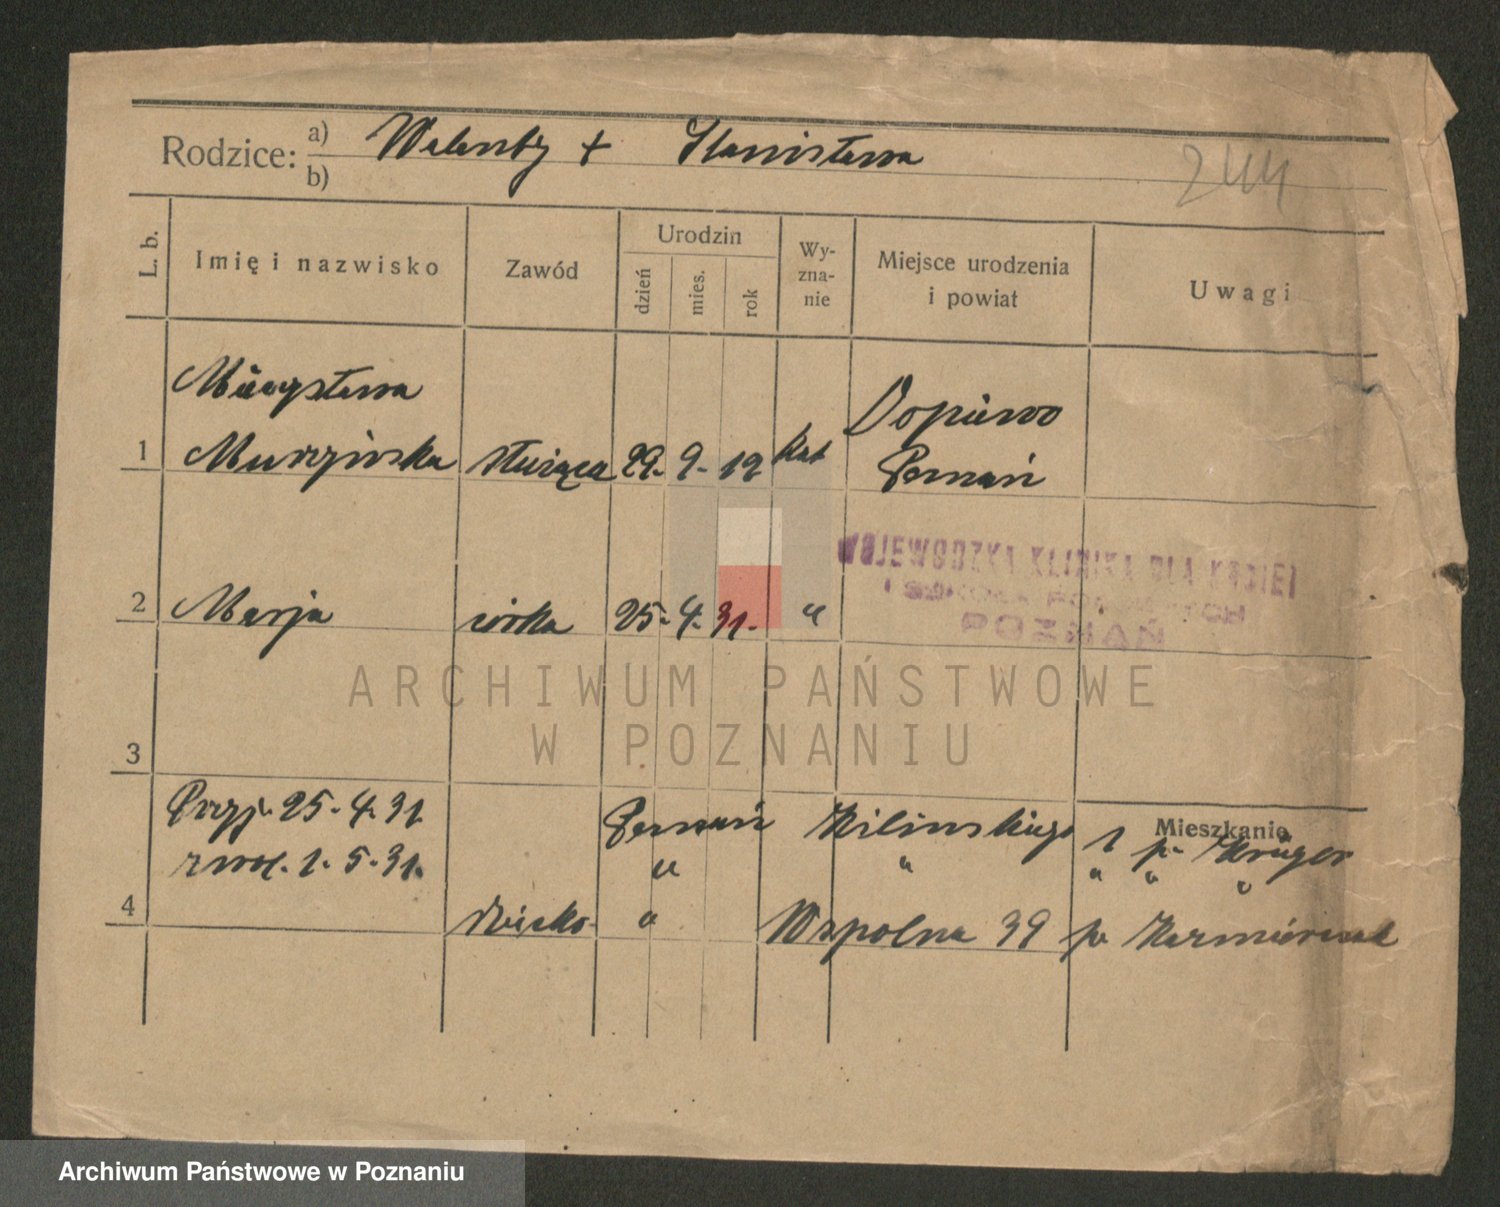 Rodzice: a) Walenty + Stanisława
b)
244
L. b. Imię i nazwisko Zawód Urodzin dzień mies. rok Wy-zna-nie Miejsce urodzenia i powiat Uwagi
Mieczysława Dopiewo
1 Murzyńska służąca 29. 9. 12 kat Poznań
WOJEWÓDZKA KLINIKA DLA KOBIET
POZNAŃ
2 Marja córka 25. 4. 31. "
ARCHIWUM PAŃSTWOWE
W POZNANIU
3
Mieszkanie
Przyj. 25. 4. 31. Poznań Kilińskiego 1 p. Krüger
zwol. 1. 5. 31. " " " " "
4 dziecko " Wspólna 39 p. Kaźmierczak
Archiwum Państwowe w Poznaniu